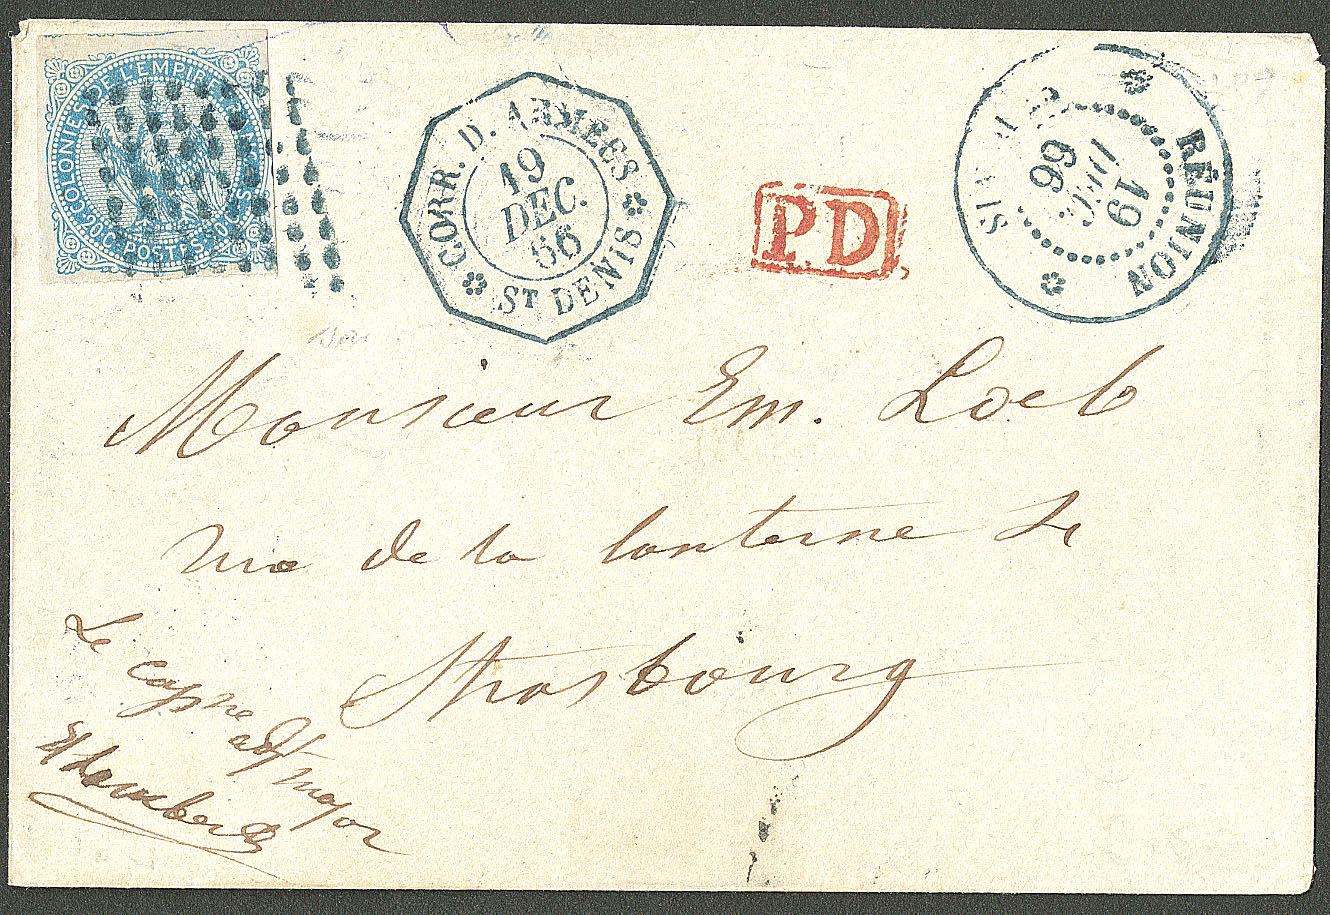 COLONIES DE L'EMPIRE FRANÇAIS
20C POSTES 20C
CORR. D. ARMEES
19
DEC.
66
ST DENIS
PD
RÉUNION
19
DEC
66
ST
Monsieur Em. Loeb
rue de la lanterne
Strasbourg
Le capne adjt major